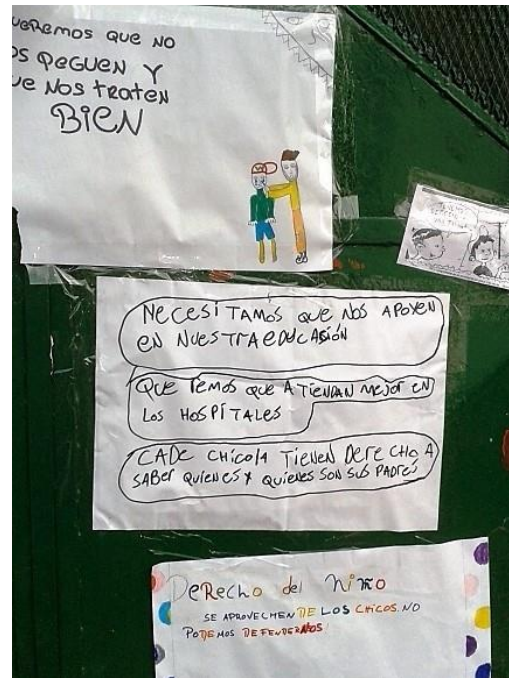 ueRemos que no
os peguen y
ue nos traten
Bien
Necesitamos que nos apoyen
en nuestra educasión
Que remos que atiendan mejor en
los hospitales
Cade chico/a tienen derecho a
saber quienes y quienes son sus padres
Derecho del niño
se aprovechen de los chicos no
podemos defendernos